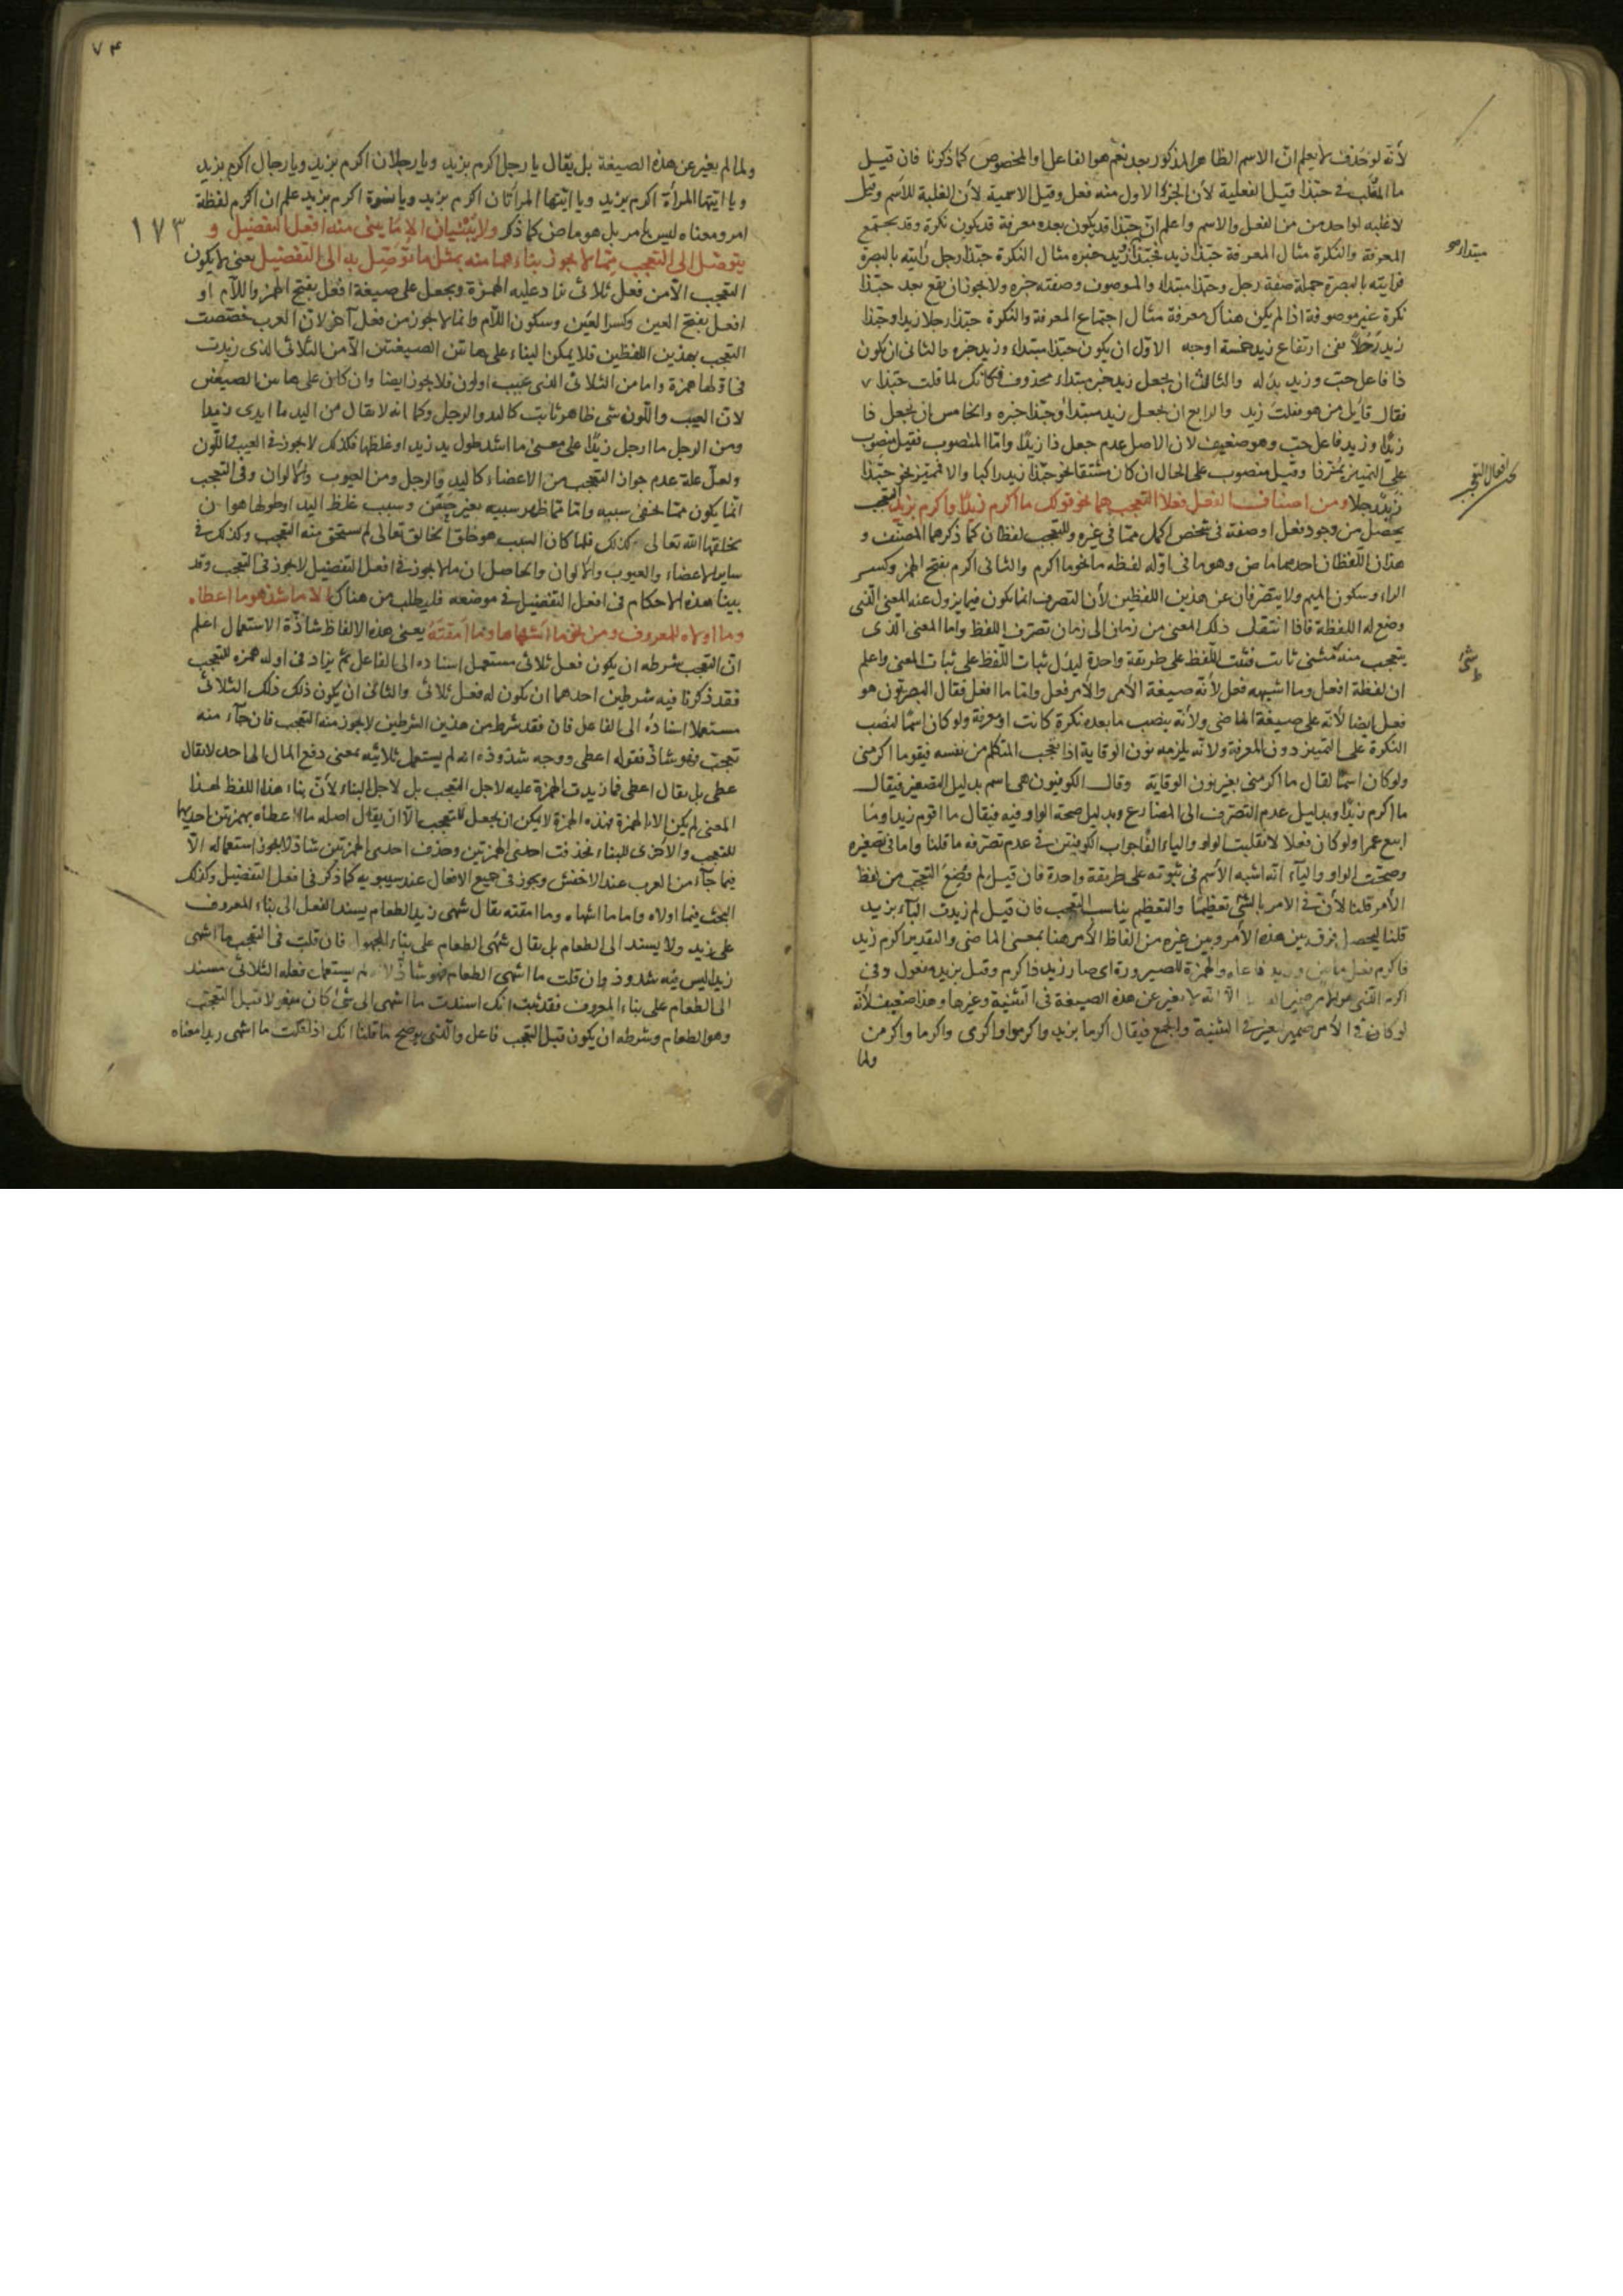 لأنه لو حذف لا يعلم ان الاسم الظاهر المذكور بعد نعم هو الفاعل او المخصوص كما ذكرنا فان قيل
ما المغلب في حبذا قيل الفعلية لأن الجزء الاول منه فعل وقيل الاسمية لأن الغلبة للاسم وقيل
لا غلبة لواحد من الفعل والاسم واعلم ان حبذا قد يكون بعده معرفة قد يكون نكرة وقد يجتمع
المعرفة والنكرة مثال المعرفة حبذا زيد فحبذا وزيد خبره مثال النكرة حبذا رجل رأيته بالبصرة
فرأيته بالبصرة جملة صفة رجل وحبذا مبتداء والموصوف وصفته خبره ولا يجوز ان يقع بعد حبذا
نكرة غير موصوفة اذا لم يكن هناك معرفة مثال اجتماع المعرفة والنكرة حبذا رجلا زيد او حبذا
زيد رجلا ففي ارتفاع زيد خمسة اوجه الاول ان يكون حبذا مبتداء وزيد خبره والثاني ان يكون
ذا فاعل حب وزيد بدله والثالث ان يجعل زيد خبر مبتداء محذوف فكانك لما قلت حبذا
فقال قايل من هو فقلت زيد والرابع ان يجعل زيد مبتدأ وحبذا خبره والخامس ان يجعل ذا
زيدا وزيد فاعل حب وهو ضعيف لان الاصل عدم جعل ذا زيدا واما المنصوب فقيل منصوب
على التمييز وقيل منصوب على الحال ان كان مشتقا نحو حبذا زيد راكبا والا فتمييز نحو حبذا
زيد رجلا ومن اصناف الفعل فعلا التعجب هما نحو قولك ما اكرم زيدا واكرم بزيد التعجب
يحصل من وجود فعل او صفة في شخص اكمل مما في غيره وللتعجب لفظان كما ذكرهما المصنف و
هذان اللفظان احدهما ماض وهو ما في اوله لفظة ما نحو ما اكرم والثاني اكرم بفتح الهمز وكسر
الراء وسكون الميم ولا يتصرفان عن هذين اللفظين لأن التصرف انما يكون فيما يزول عنه المعنى الذي
وضع له اللفظة فاذا انتقل ذلك المعنى من زمان الى زمان تصرف اللفظ واما المعنى الذي
يتعجب منه فشئ ثابت فثبت اللفظ على طريقة واحدة ليدل ثبات اللفظ على ثبات المعنى واعلم
ان لفظة افعل وما اشبهه فعل لأنه صيغة الأمر والأمر فعل واما ما افعل فقال البصريون هو
فعل ايضا لأنه على صيغة الماضي ولأنه ينصب ما بعده نكرة كانت او معرفة ولو كان اسما لنصب
النكرة على التمييز دون المعرفة ولانه يلزمه نون الوقاية اذا تعجب المتكلم من نفسه فيقول ما اكرمني
ولو كان اسما لقال ما اكرمي بغير نون الوقاية وقال الكوفيون هي اسم بدليل التصغير فيقال
ما اكرم زيدا وبدليل عدم التصرف الى المضارع وبدليل صحة الواو فيه فيقال ما اقوم زيدا وما
ابيع عمرا ولو كان فعلا لانقلبت الواو والياء الفا جواب الكوفيين في عدم تصرفه ما قلنا واما في تصغيره
وصحت الواو والياء انه اشبه الأسم في ثبوته على طريقة واحدة فان قيل لم وضع التعجب من لفظ
الأمر قلنا لأن في الامر بالشئ تعظيما والتعظيم يناسب التعجب فان قيل لم زيدت الباء بزيد
قلنا ليحصل فرق بين هذه الأمر وبين غيره من الفاظ الأمر هنا بمعنى الماضي والتقدير اكرم زيد
فاكرم فعل ماض وزيد فاعله والهمزة للصيرورة اى صار زيد ذا كرم وقيل بزيد مفعول وفي
اكرم الذي هو للأمر ضمير الا انه لا يغير عن هذه الصيغة في التثنية وغيرها وهذا ضعيف لأنه
لو كان في الأمر ضمير لغير في التثنية والجمع فيقال اكرما بزيد واكرموا واكرمي واكرما واكرمن
ولما
مبتداء هو
افعال التعجب
شئ
٧٤
ولما لم يغير عن هذه الصيغة بل يقال يا رجل اكرم بزيد ويا رجلان اكرم بزيد ويا رجال اكرم بزيد
ويا ايتها المرأة اكرم بزيد ويا ايتها المرأتان اكرم بزيد ويا نسوة اكرم بزيد علم ان اكرم لفظة
١٧٣
امر ومعناه ليس بامر بل هو ماض كما ذكر ولا يبنيان الا مما يبنى منه افعل التفضيل و
يتوصل الى التعجب مما لا يجوز بناءهما منه بمثل ما توصل به الى التفضيل يعنى لا يكون
التعجب الا من فعل ثلاثي زاد عليه الهمزة ويجعل على صيغة افعل بفتح الهمز واللام او
افعل بفتح العين وكسر العين وسكون اللام وانما لا يجوز من فعل آخر لان العرب خصصت
التعجب بهذين اللفظين فلا يمكن البناء على هاتين الصيغتين الا من الثلاثي الذي زيدت
في اولها همزة واما من الثلاثي الذي عيب او لون فلا يجوز ايضا وان كان على هاتين الصيغتين
لان العيب واللون شئ ظاهر ثابت كاليد والرجل وكما انه لا يقال من اليد ما ايدى زيدا
ومن الرجل ما ارجل زيدا على معنى ما اشد طول يد زيد او غلظها فكذلك لا يجوز في العيب واللون
ولعل علة عدم جواز التعجب من الاعضاء كاليد والرجل ومن العيوب والالوان وفي التعجب
انما يكون مما خفى سببه واما ما ظهر سببه فغير حقيق وسبب غلظ اليد او طولها هو ان
يخلقها الله تعالى كذلك فلما كان السبب هو خلق الخالق تعالى لم يستحق منه التعجب وكذلك في
ساير الاعضاء والعيوب والالوان والحاصل ان ما لا يجوز في افعل التفضيل لا يجوز في التعجب وقد
بينا هذه الاحكام في افعل التفضيل في موضعه فليطلب من هناك الا ما شذ نحو ما اعطاه
وما اولاه للمعروف ومن نحو ما اشهاها وما امقته يعنى هذه الالفاظ شاذة الاستعمال اعلم
ان التعجب شرطه ان يكون فعل ثلاثي مستعمل اسناده الى الفاعل ثم يزاد في اوله همزة للتعجب
فقد ذكرنا فيه شرطين احدهما ان يكون له فعل ثلاثي والثاني ان يكون ذلك الثلاثي
مستعملا اسناده الى الفاعل فان فقد شرط من هذين الشرطين لا يجوز منه التعجب فان جاء منه
تعجب فهو شاذ فقوله اعطى ووجه شذوذه انه لم يستعمل ثلاثيه بمعنى دفع المال الى احد لا يقال
عطى بل يقال اعطى فما زيدت الهمزة عليه لاجل التعجب بل لاجل البناء لأن بناء هذا اللفظ لهذا
المعنى لم يكن الا بالهمزة فهذه الهمزة لا يمكن ان يجعل للتعجب الا ان يقال اصله ما اعطاه بهمزتين احديها
للتعجب والاخرى للبناء فحذفت احدى الهمزتين وحذف احدى الهمزتين شاذ لا يجوز استعماله الا
فيما جاء من العرب عند الاخفش ويجوز في جميع الافعال عند سيبويه كما ذكر في افعل التفضيل وكذلك
البحث فيما اولاه واما ما اشهاه وما امقته يقال شهى زيد الطعام يسند الفعل الى بناء المعروف
على زيد ولا يسند الى الطعام بل يقال شهى الطعام على بناء المجهول فان قلت في التعجب ما اشهى
زيدا ليس فيه شذوذ وان قلت ما اشهى الطعام فهو شاذ لم يستعمل فعله الثلاثي مسند
الى الطعام على بناء المعروف فقد ثبت انك اسندت ما اشهى الى شئ كان مفعولا قبل التعجب
وهو الطعام وشرطه ان يكون قبل التعجب فاعل والذي يوضح ما قلنا انك اذا قلت ما اشهى زيدا معناه